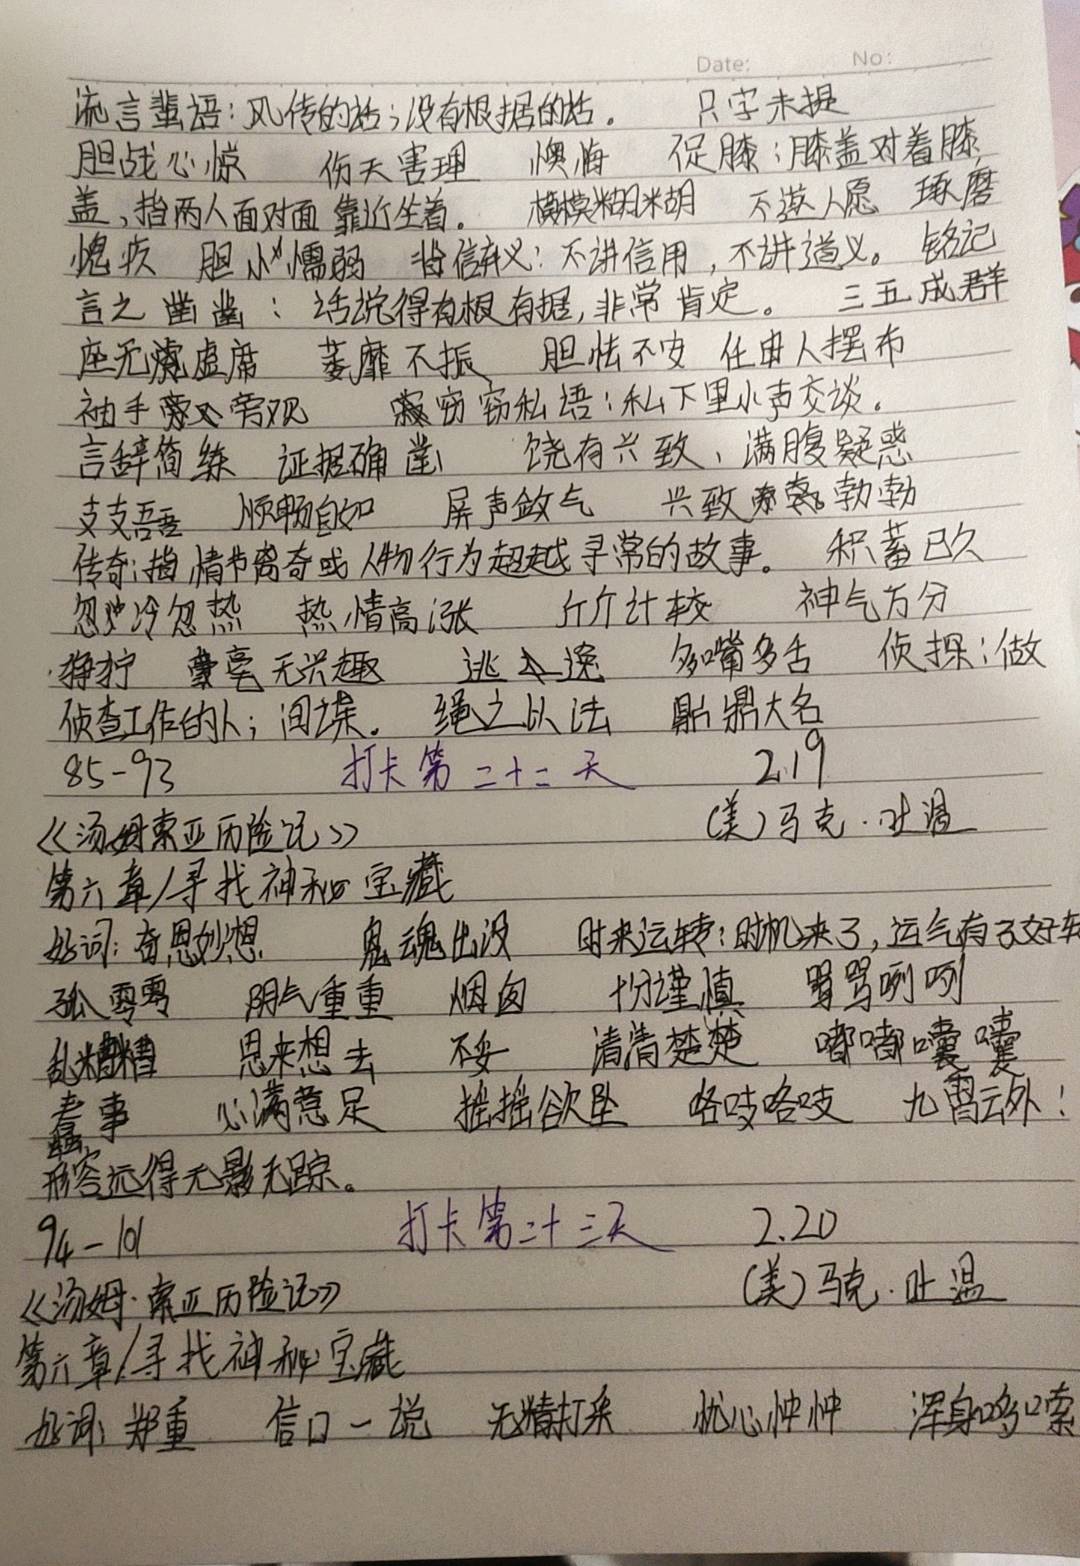 Date: No:
流言蜚语：风传的话；没有根据的话。 只字未提
胆战心惊 伤天害理 懊悔 促膝：膝盖对着膝
盖，指两人面对面靠近坐着。 模模糊糊 不遂人愿 琢磨
愧疚 胆小懦弱 背信弃义：不讲信用，不讲道义。 铭记
言之凿凿：话说得有根有据，非常肯定。 三五成群
座无虚席 萎靡不振 胆怯不安 任由人摆布
袖手旁观 窃窃私语：私下里小声交谈。
言辞简练 证据确凿 饶有兴致、满腹疑惑
支支吾吾 顺畅自如 屏声敛气 兴致勃勃
传奇：指情节离奇或人物行为超越寻常的故事。 积蓄已久
忽冷忽热 热情高涨 斤斤计较 神气万分
狰狞 毫无兴趣 逃逸 多嘴多舌 侦探：做
侦查工作的人；间谍。 绳之以法 鼎鼎大名
85-93 打卡第二十二天 2.19
《汤姆索亚历险记》 （美）马克·吐温
第六章/寻找神秘宝藏
好词：奇思妙想 鬼魂出没 时来运转：时机来了，运气有了好转
孤零零 阴气重重 烟囱 十分谨慎 骂骂咧咧
乱糟糟 思来想去 不妥 清清楚楚 嘟嘟囔囔
蠢事 心满意足 摇摇欲坠 咯吱咯吱 九霄云外：
形容远得无影无踪。
94-101 打卡第二十三天 2.20
《汤姆·索亚历险记》 （美）马克·吐温
第六章/寻找神秘宝藏
好词：郑重 信口一说 无精打采 忧心忡忡 浑身哆嗦